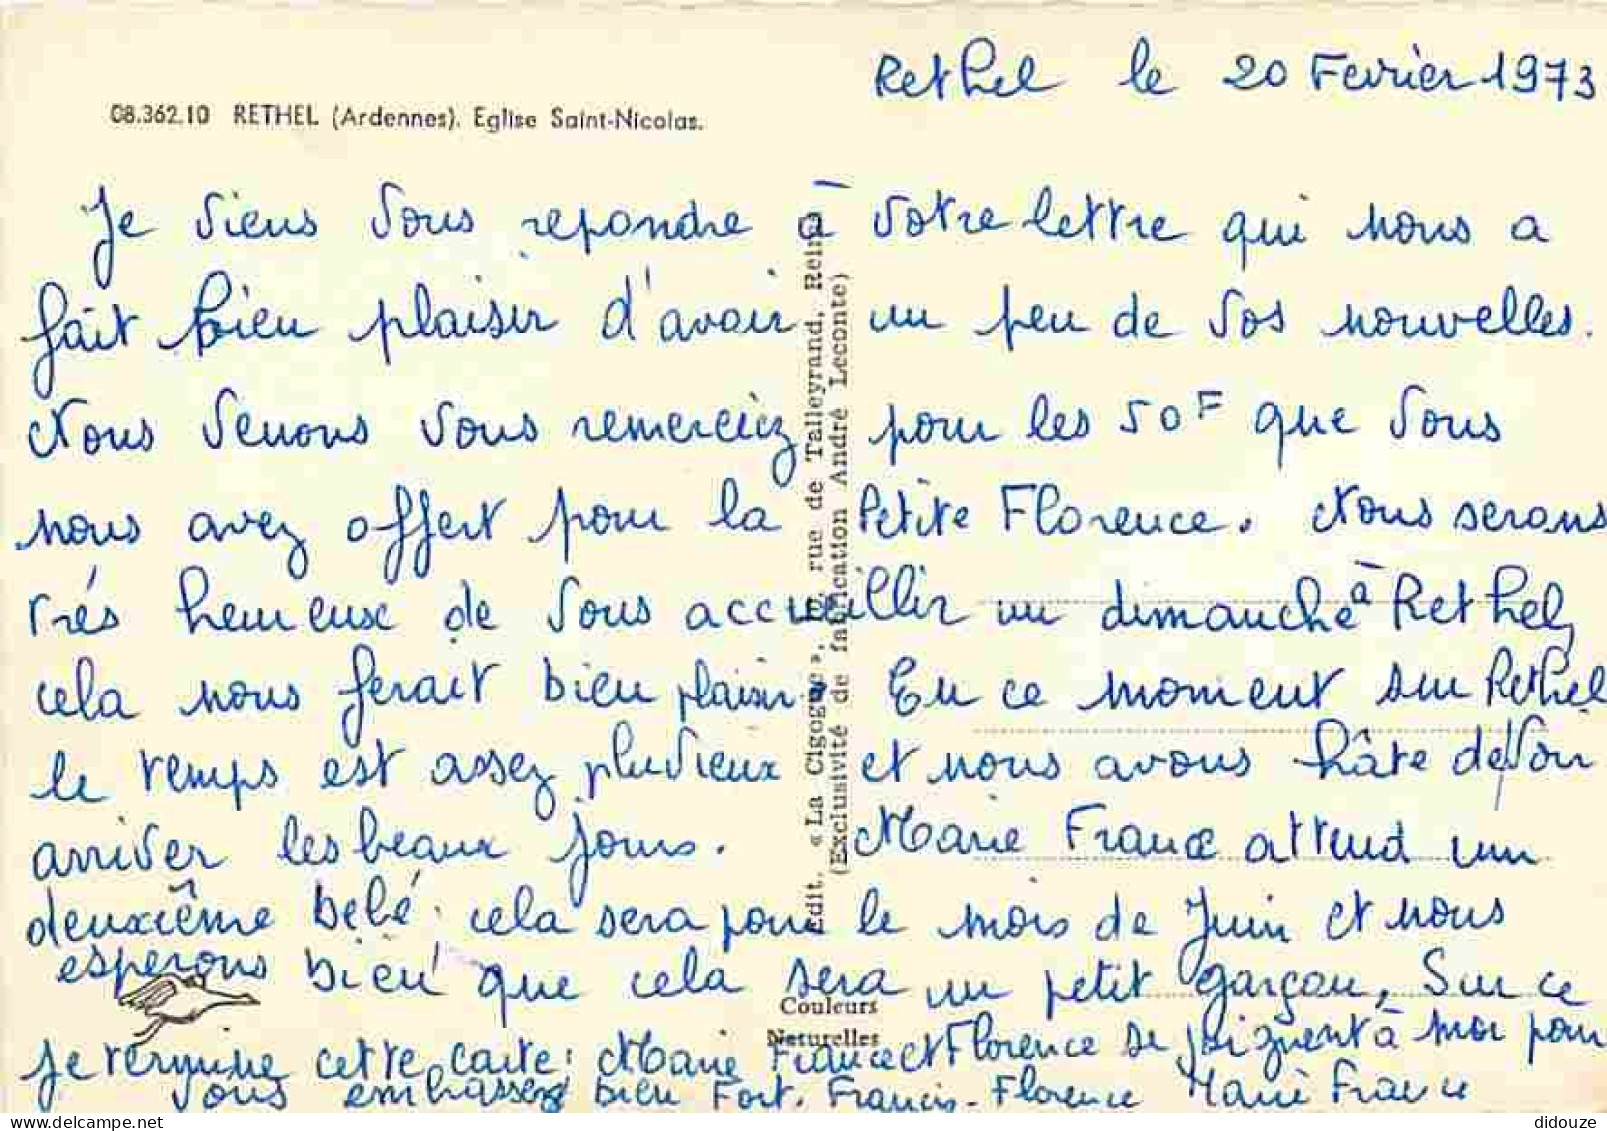 Rethel le 20 Fevrier 1973
08.362.10 RETHEL (Ardennes). Eglise Saint-Nicolas.
Je viens vous repondre à votre lettre qui nous a
fait bien plaisir d'avoir un peu de vos nouvelles.
Nous venons vous remerciez pour les 50F que vous
nous avez offert pour la Petite Florence. Nous serons
trés heureuse de vous accueillir un dimanche à Rethel,
cela nous ferait bien plaisir. En ce moment sur Rethel
le temps est assez pluvieux et nous avons hâte de voir
arriver les beaux jours. Marie France attend un
deuxiême bébé. cela sera pour le mois de Juin et nous
esperons bien que cela sera un petit garçon, Sur ce
je termine cette carte. Marie France et Florence se joignent à moi pour
vous embrassez bien Fort. Francis - Florence Marie France
Edit. «La Cigogne», rue de Talleyrand, Reims
(Exclusivité de fabrication André Leconte)
Couleurs
Naturelles
didouze